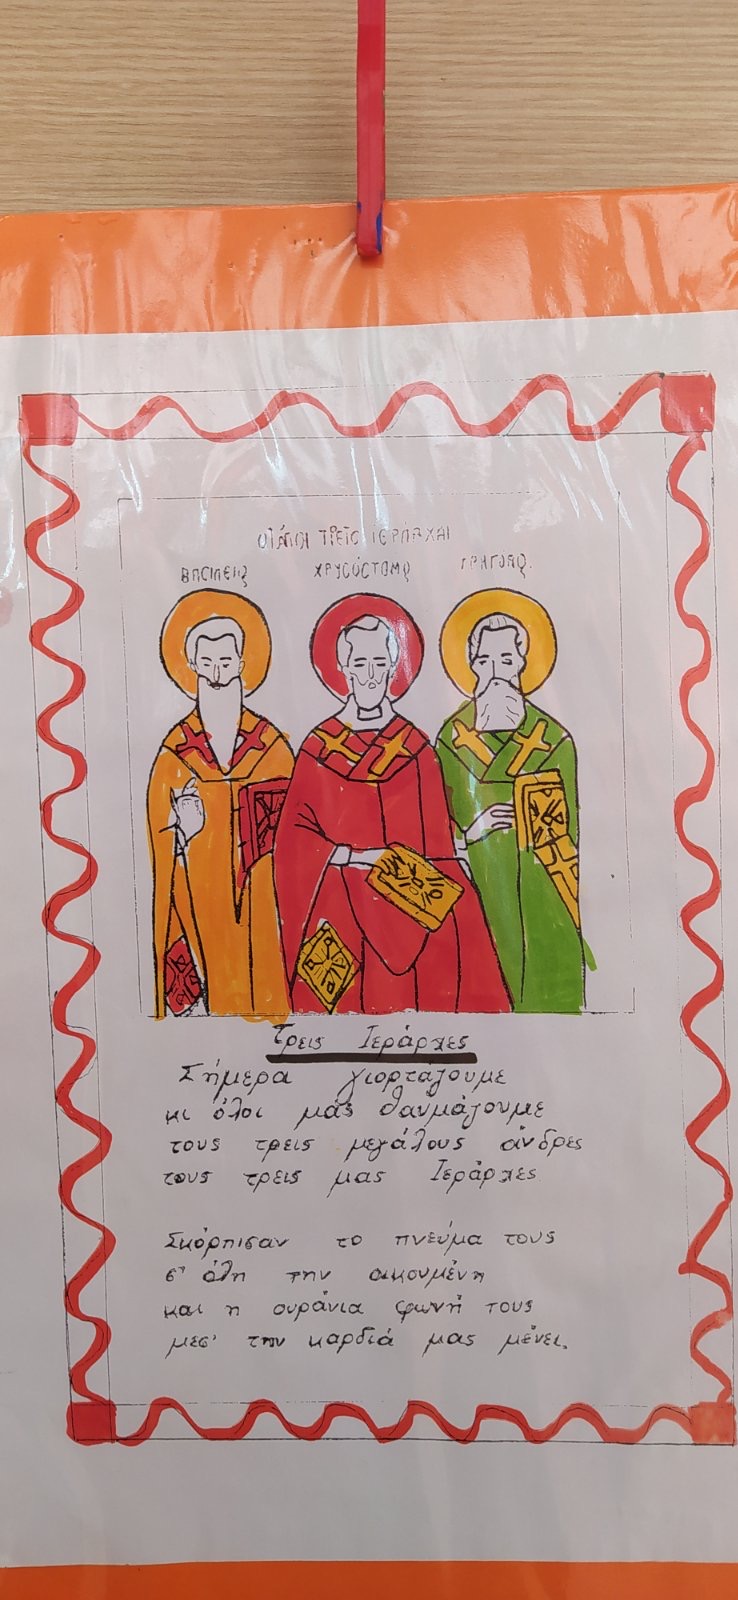 ΟΙ ΑΓΙΟΙ ΤΡΕΙΣ ΙΕΡΑΡΧΑΙ
ΒΑΣΙΛΕΙΟς ΧΡΥΣΟΣΤΟΜΟς ΓΡΗΓΟΡΙΟς
Τρεις Ιεράρχες
Σήμερα γιορτάζουμε
κι όλοι μάς θαυμάζουμε
τους τρεις μεγάλους άνδρες
τους τρεις μας Ιεράρχες
Σκόρπισαν το πνεύμα τους
σ' όλη την οικουμένη
και η ουράνια φωνή τους
μεσ' την καρδιά μας μένει.